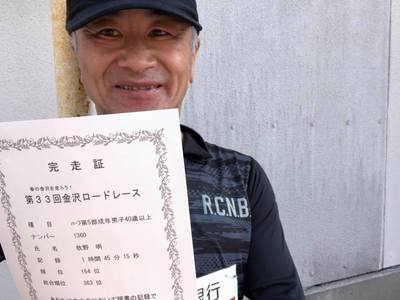 完走証
春の金沢を走ろう!
第33回金沢ロードレース
種目 ハーフ第5部成年男子40歳以上
ナンバー 1360
氏名 牧野 明
記録 1時間45分15秒
順位 154位
総合順位 363位
R.C.N.B.
行